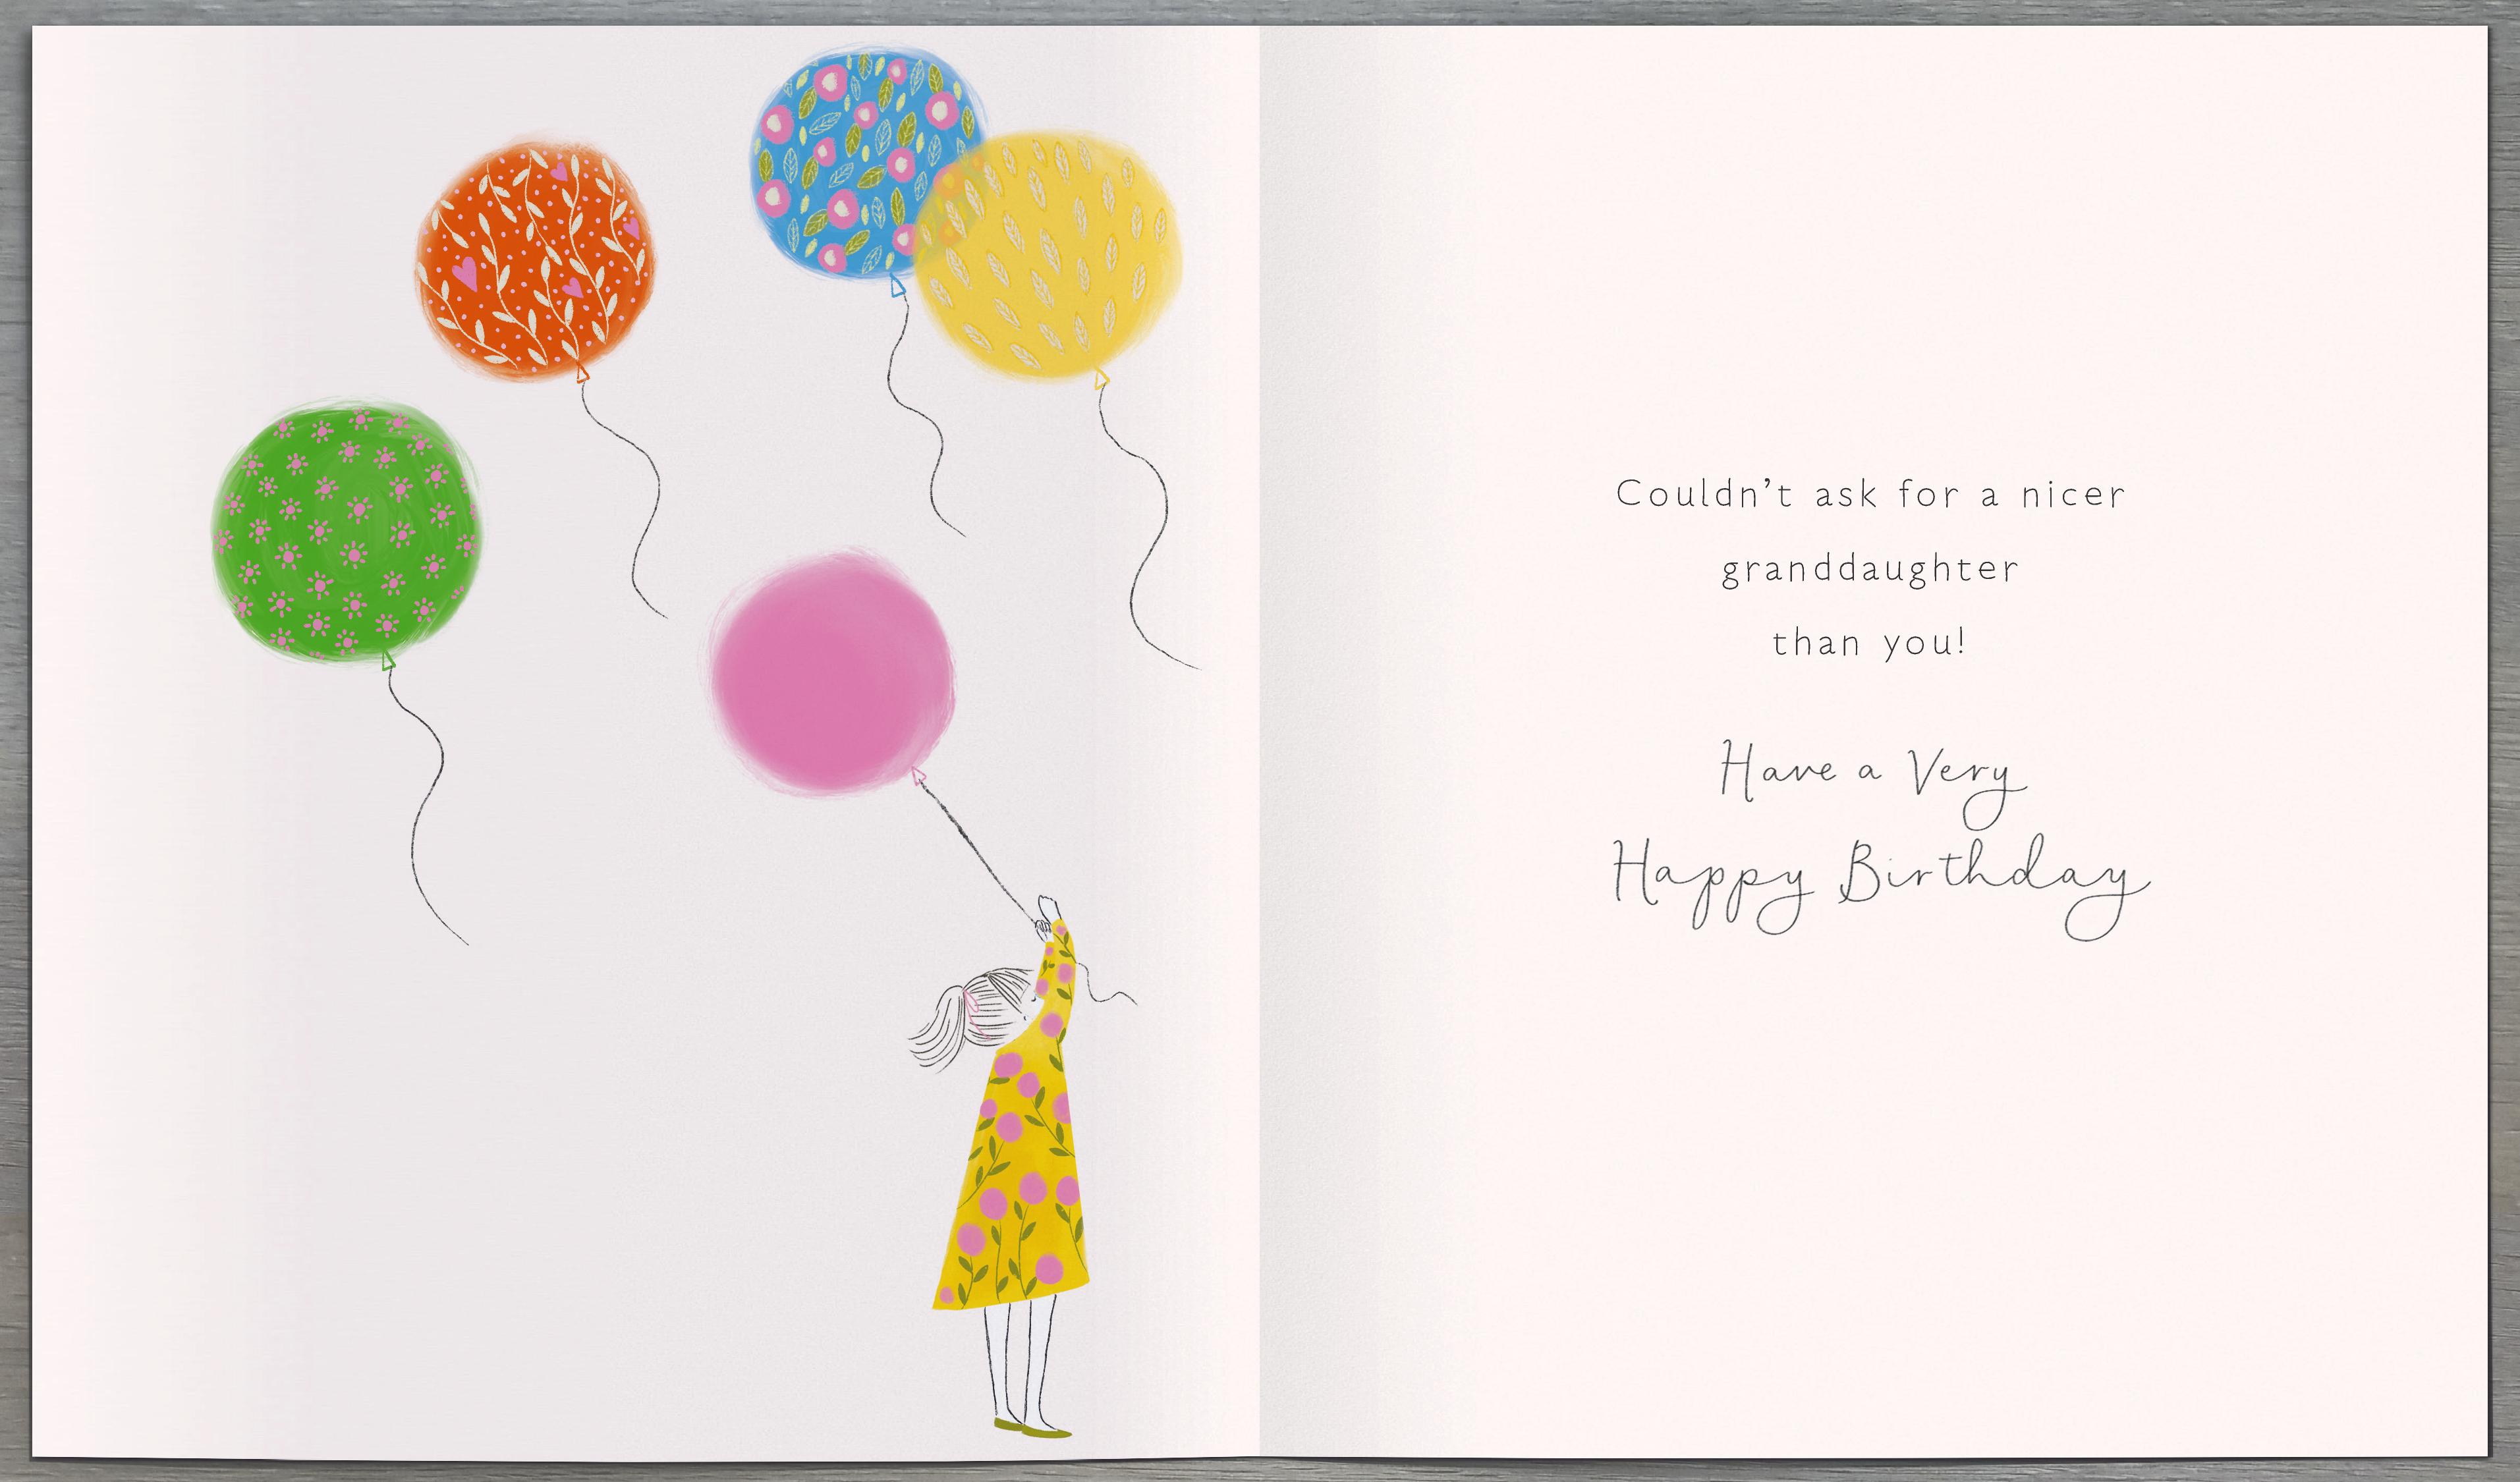 Couldn’t ask for a nicer
granddaughter
than you!
Have a Very
Happy Birthday